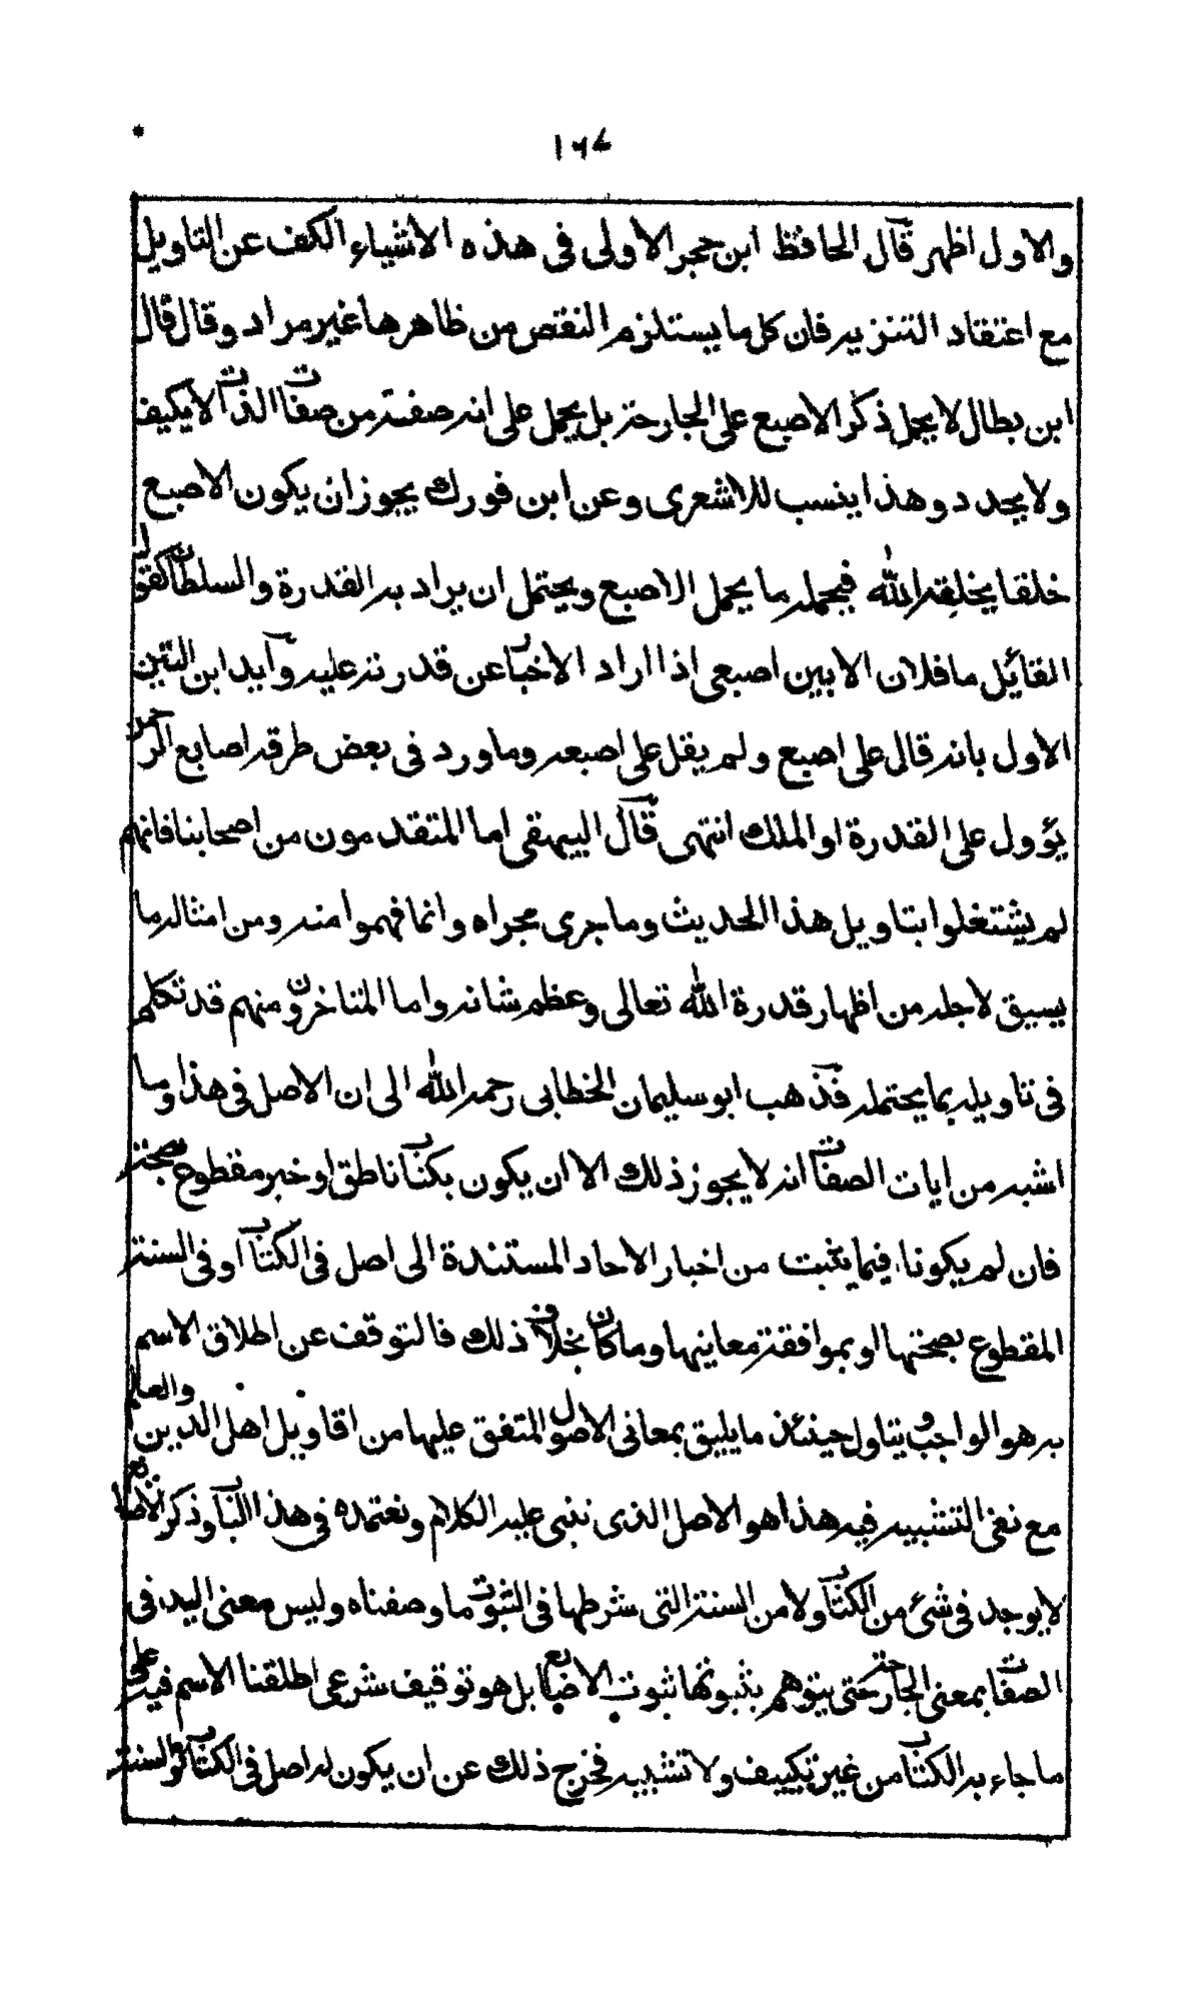 ١٦٤
والاول اظهر قال الحافظ ابن حجر الاولى فى هذه الأشياء الكف عن التاويل
مع اعتقاد التنزيه فان كل ما يستلزم النقص من ظاهرها غير مراد وقال قال
ابن بطال لا يحمل ذكر الاصبع على الجارحة بل يحمل على انه صفة من صفات الذات لا يكيف
ولا يحدد وهذا ينسب للاشعرى وعن ابن فورك يجوز ان يكون الاصبع
خلقا يخلقه الله فيحمله ما يحمل الاصبع ويحتمل ان يراد به القدرة والسلطان كقول
القائل ما فلان الا بين اصبعى اذا اراد الاخبار عن قدرته عليه وايد ابن التين
الاول بانه قال على اصبع ولم يقل على اصبعه وما ورد فى بعض طرقه اصابع الرحمن
يؤول على القدرة او الملك انتهى قال البيهقى اما المتقدمون من اصحابنا فانهم
لم يشتغلوا بتاويل هذا الحديث وما جرى مجراه وانما فهموا منه ومن امثاله ما
يسيق لاجله من اظهار قدرة الله تعالى وعظم شانه واما المتاخرون منهم قد تكلم
فى تاويله بما يحتمله فذهب ابو سليمان الخطابى رحمه الله الى ان الاصل فى هذا وما
اشبه من ايات الصفات انه لا يجوز ذلك الا ان يكون بكتاب ناطق او خبر مقطوع بصحته
فان لم يكونا فيما يثبت من اخبار الاحاد المستندة الى اصل فى الكتاب او فى السنة
المقطوع بصحتها او بموافقة معاينها وما كان بخلاف ذلك فالتوقف عن اطلاق الاسم
به هو الواجب ويتاول حينئذ ما يليق بمعانى الاصول المتفق عليها من اقاويل اهل الدين والعلم
مع نفى التشبيه فيه هذا هو الاصل الذى نبنى عليه الكلام ونعتمده فى هذا الباب وذكر الاصابع
لا يوجد فى شئ من الكتاب ولا من السنة التى شرطها فى الثبوت ما وصفناه وليس معنى اليد فى
الصفات بمعنى الجارحة حتى يتوهم بثبوتها ثبوت الاصابع بل هو توقيف شرعى اطلقنا الاسم فيه على
ما جاء به الكتاب من غير تكييف ولا تشبيه فخرج ذلك عن ان يكون له اصل فى الكتاب او السنة